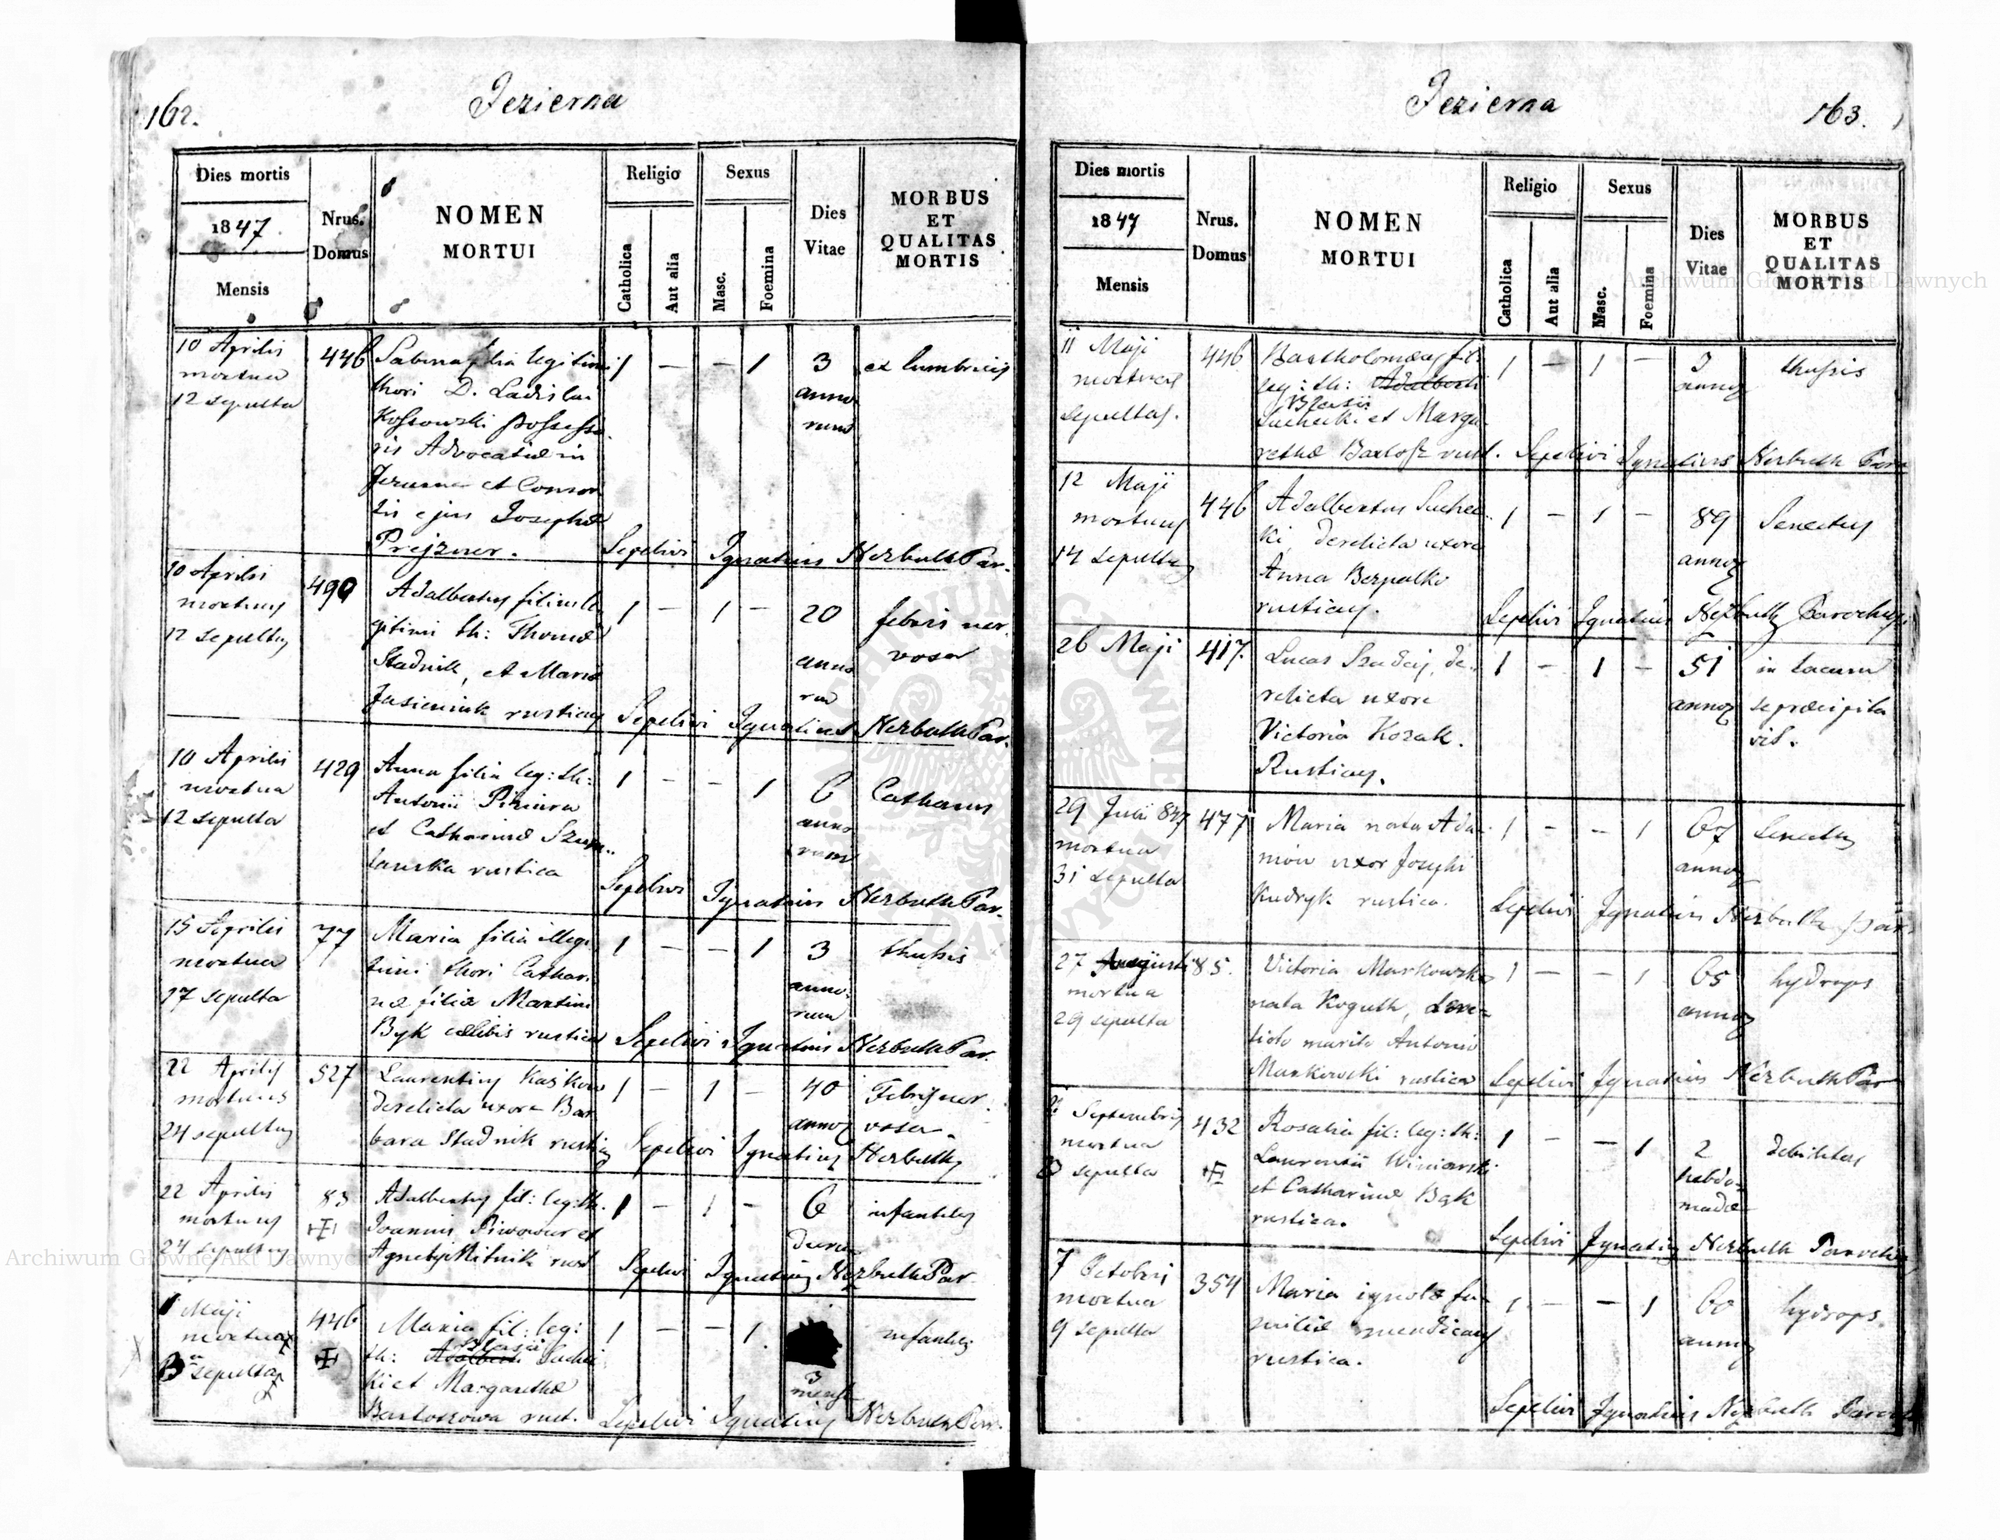 162.
Jezierna
Dies mortis
1847.
Mensis
Nrus.
Domus
NOMEN
MORTUI
Religio
Catholica
Aut alia
Sexus
Masc.
Foemina
Dies
Vitae
MORBUS
ET
QUALITAS
MORTIS
10 Aprilis
mortua
12 sepulta
446
Sabina filia legitimi
thori D. Ladislai
Kossowski possesso
ris Advocatiæ in
Jezierna et Consor
tis ejus Josephæ
Prejzner.
1 — — 1
3
anno
rum
ex lumbricis
Sepelivi Ignatius Nerbuth Par.
10 Aprilis
mortuus
12 sepultus
490
Adalbertus filius le
gitimi th: Thomæ
Stadnik, et Mariæ
Jasieniuk rusticus
1 — 1 —
20
anno
rum
febris ner
vosa
Sepelivi Ignatius Nerbuth Par.
10 Aprilis
mortua
12 sepulta
429
Anna filia leg: th:
Antonii
et Catharinæ
rustica
1 — — 1
6
anno
rum
Catharus
Sepelivi Ignatius Nerbuth Par.
15 Aprilis
mortua
17 sepulta
77
Maria filia illegi
timi thori Cathari
næ filiæ Martini
Byk cælibis rustica
1 — — 1
3
anno
rum
thussis
Sepelivi Ignatius Nerbuth Par.
22 Aprilis
mortuus
24 sepultus
527
Laurentius
derelicta uxore Bar
bara Stadnik
1 — 1 —
40
annor
Febris ner
vosa
Sepelivi Ignatius Nerbuth
22 Aprilis
mortuus
24 sepultus
83
Adalbertus fil: leg: th:
Joannis Piwowar et
Agnetis Mitnik rust
1 — 1 —
6
infantilis
Sepelivi Ignatius Nerbuth Par
1 Maji
mortua
3 sepulta
446
Maria fil: leg:
Blasii
th: Adalberti Suchec
ki et Margarethæ
Bartoszowa rust.
1 — — 1
3
mens
infantilis
Sepelivi Ignatius Nerbuth Par.
Jezierna
163.
Dies mortis
1847
Mensis
Nrus.
Domus
NOMEN
MORTUI
Religio
Catholica
Aut alia
Sexus
Masc.
Foemina
Dies
Vitae
MORBUS
ET
QUALITAS
MORTIS
11 Maji
mortuus
sepultus.
446
Bartholomæus fil
leg: th: Adalberti
Blasii
Suchecki et Marga
rethæ Bartosz rust.
1 — 1 —
3
annor
thussis
Sepelivi Ignatius Nerbuth Par
12 Maji
mortuus
14 sepultus
446
Adalbertus Suchec
ki, derelicta uxore
Anna
rusticus.
1 — 1 —
89
annor
Senectus
Sepelivi Ignatius Nerbuth Parochus
26 Maji
417.
Lucas de
relicta uxore
Victoria Kozak.
Rusticus.
1 — 1 —
51
annor
in lacum
se præcipita
vit.
29 Julii 847
mortua
31 sepulta
477
Maria nata Ada
mów uxor Josephi
Kudryk rustica.
1 — — 1
67
annor
Senectus
Sepelivi Ignatius Nerbuth Par.
27 Augusti
mortua
29 sepulta
85.
Victoria Markowska
nata Koguth, dere=
licto marito Antonio
Markowski rustica
1 — — 1
65
annor
hydrops
Sepelivi Ignatius Nerbuth Par
Septembris
mortua
sepulta
432
Rosalia fil: leg: th:
Laurentii Winiarski
et Catharinæ Bąk
rustica.
1 — — 1
2
hebdo=
madæ
debilitas
Sepelivi Ignatius Nerbuth Parochus
7 Octobris
mortua
9 sepulta
354
Maria ignotæ fa
miliæ mendicans
rustica.
1 — — 1
60
annor
hydrops.
Sepelivi Ignatius Nerbuth Parochus
Archiwum Główne Akt Dawnych
Archiwum Główne Akt Dawnych
ARCHIWUM GŁÓWNE AKT DAWNYCH